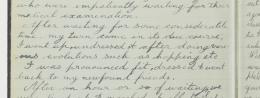 who were impatiently waiting for their
medical examination.
After waiting for some considerable
time my turn came in its due course,
I went up undressed & after doing various
evolutions such as hopping etc
I was pronounced fit, dressed & went
back to my newfound friends.
After an hour or so of waiting we